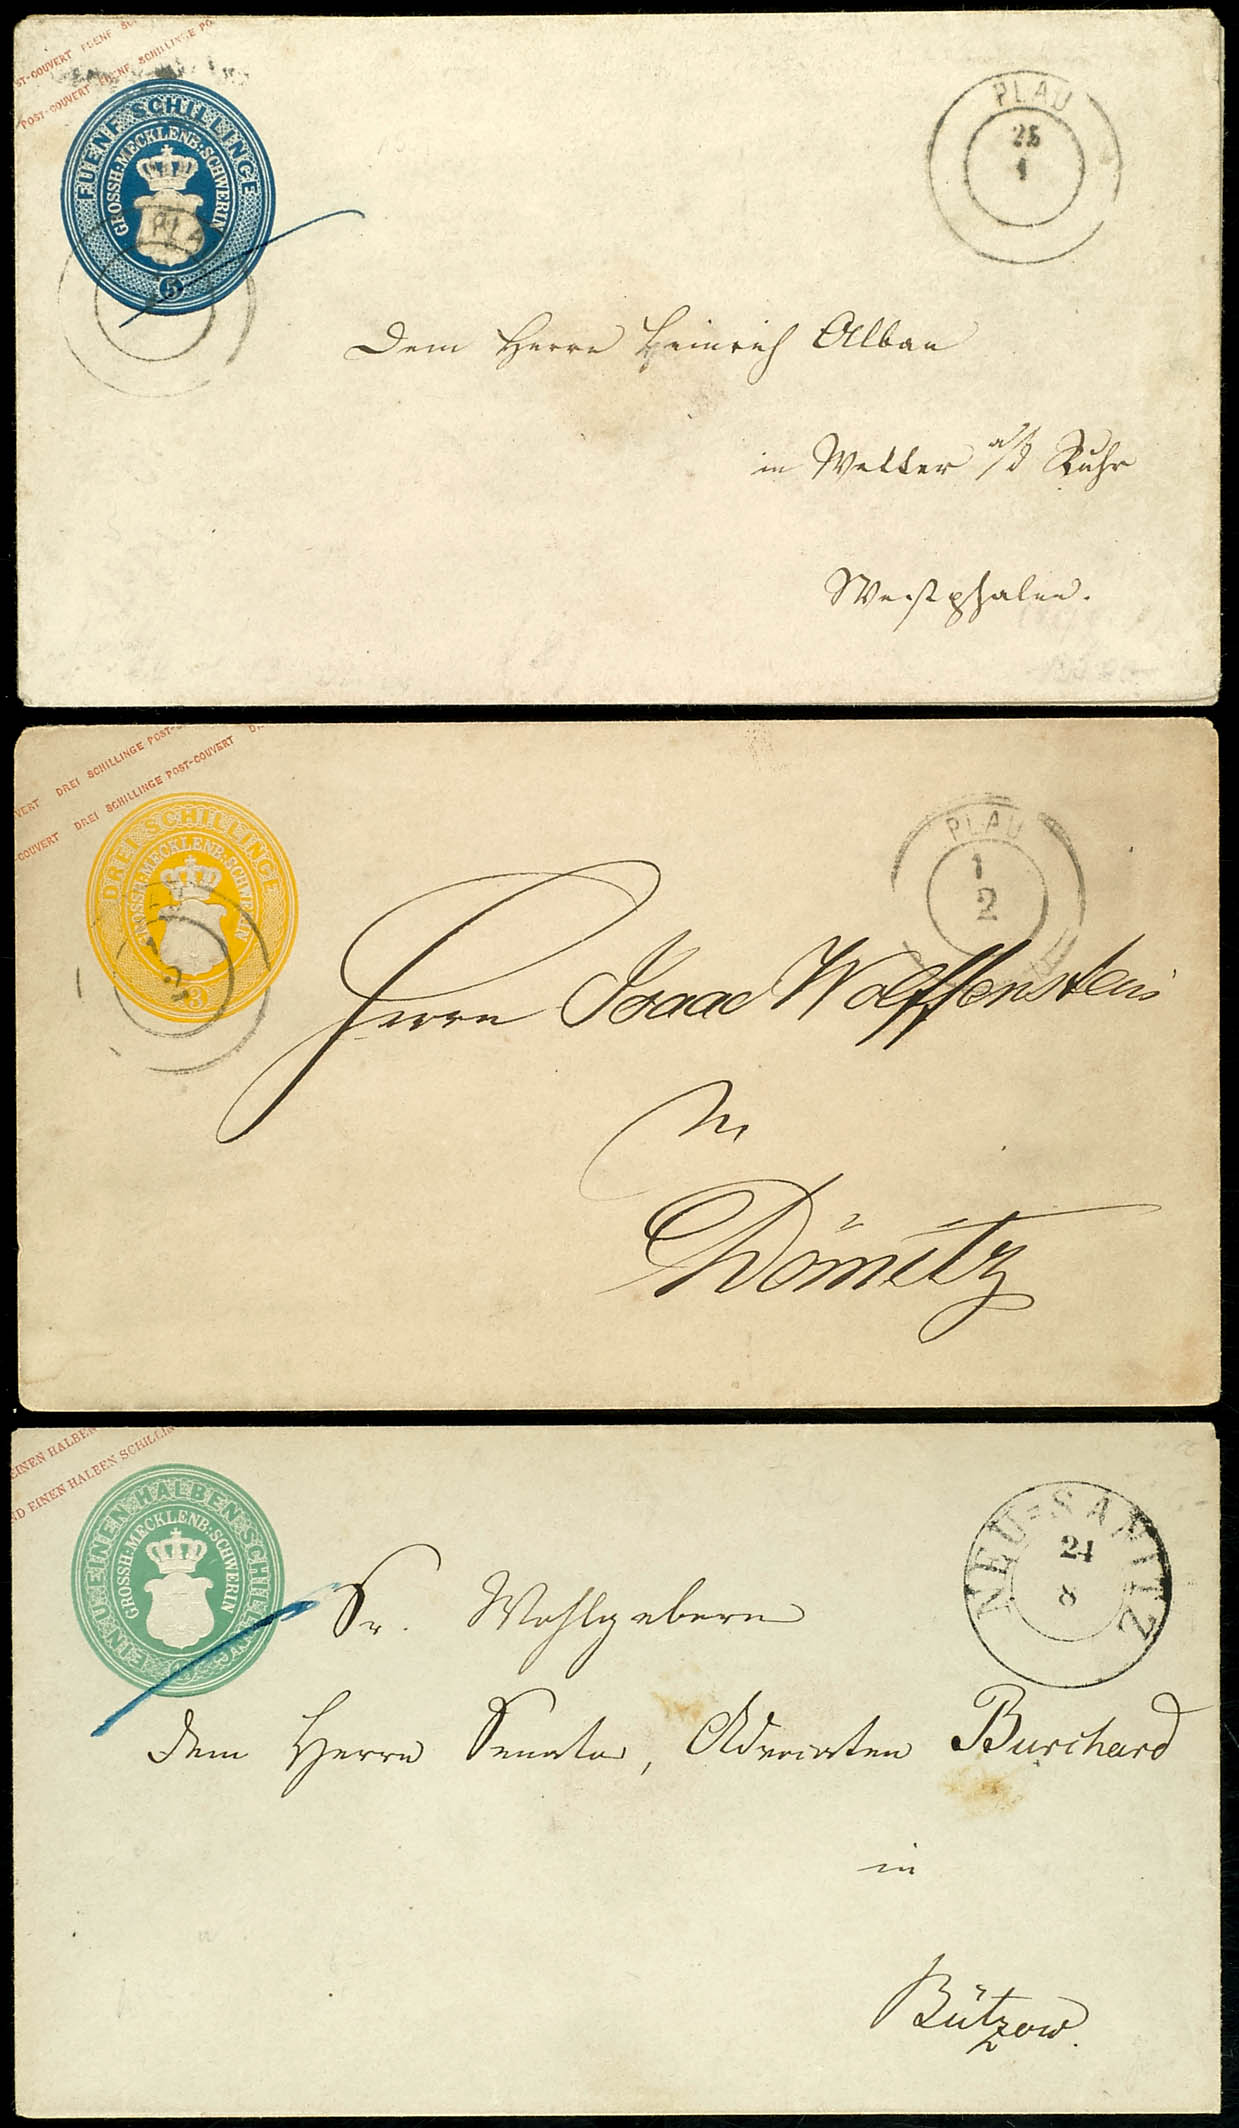 ST-COUVERT FUENF SC
POST-COUVERT FUENF SCHILLINGE PO
FUENF SCHILLINGE
GROSSH: MECKLENB: SCHWERIN
5
PLAU
25
1
Dem Herrn Heinrich Alban
in Wetter a/d Ruhr
Westphalen.
VERT DREI SCHILLINGE POST-
-COUVERT DREI SCHILLINGE POST-COUVERT D
DREI SCHILLINGE
GROSSH: MECKLENB: SCHWERIN
3
PLAU
1
2
Herrn Isaac Wolffenstein
in
Dömitz
EINEN HALBEN
ND EINEN HALBEN SCHILLIN
EIN U. EINEN HALBEN SCHILLING
GROSSH: MECKLENB: SCHWERIN
NEU-SANITZ
21
8
Sr. Wohlgeboren
dem Herrn Senator, Advocaten Burchard
in
Bützow.